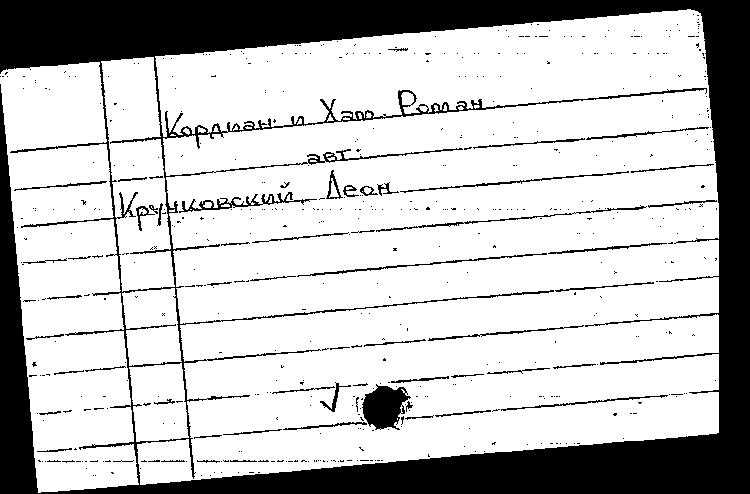 Кордиан и Хам. Роман
авт:
Кручковский, Леон